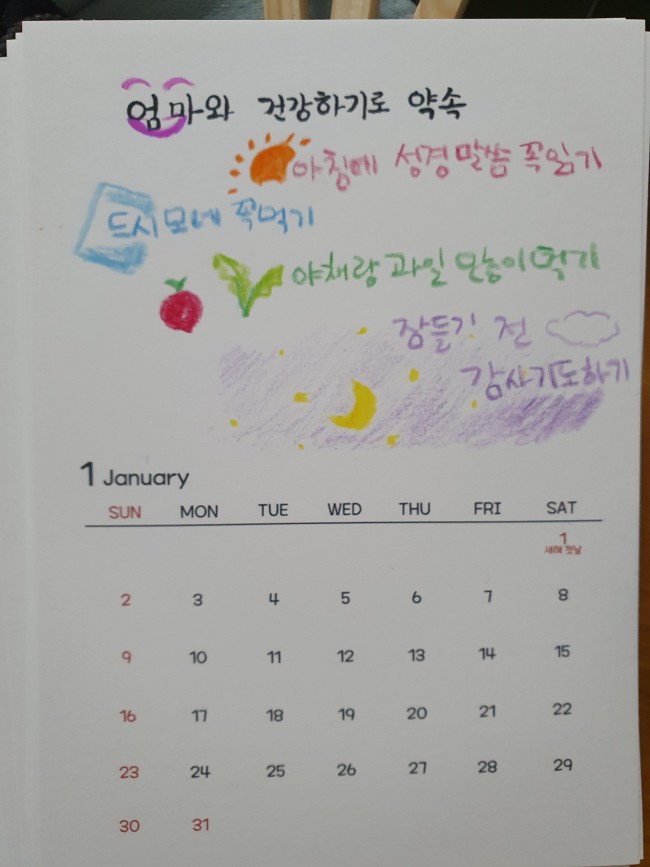 엄마와 건강하기로 약속
아침에 성경말씀 꼭읽기
드시모네 꼭먹기
야채랑 과일 많이 먹기
잠들기 전
감사기도하기
1 January
SUN MON TUE WED THU FRI SAT
1
새해 첫날
2 3 4 5 6 7 8
9 10 11 12 13 14 15
16 17 18 19 20 21 22
23 24 25 26 27 28 29
30 31